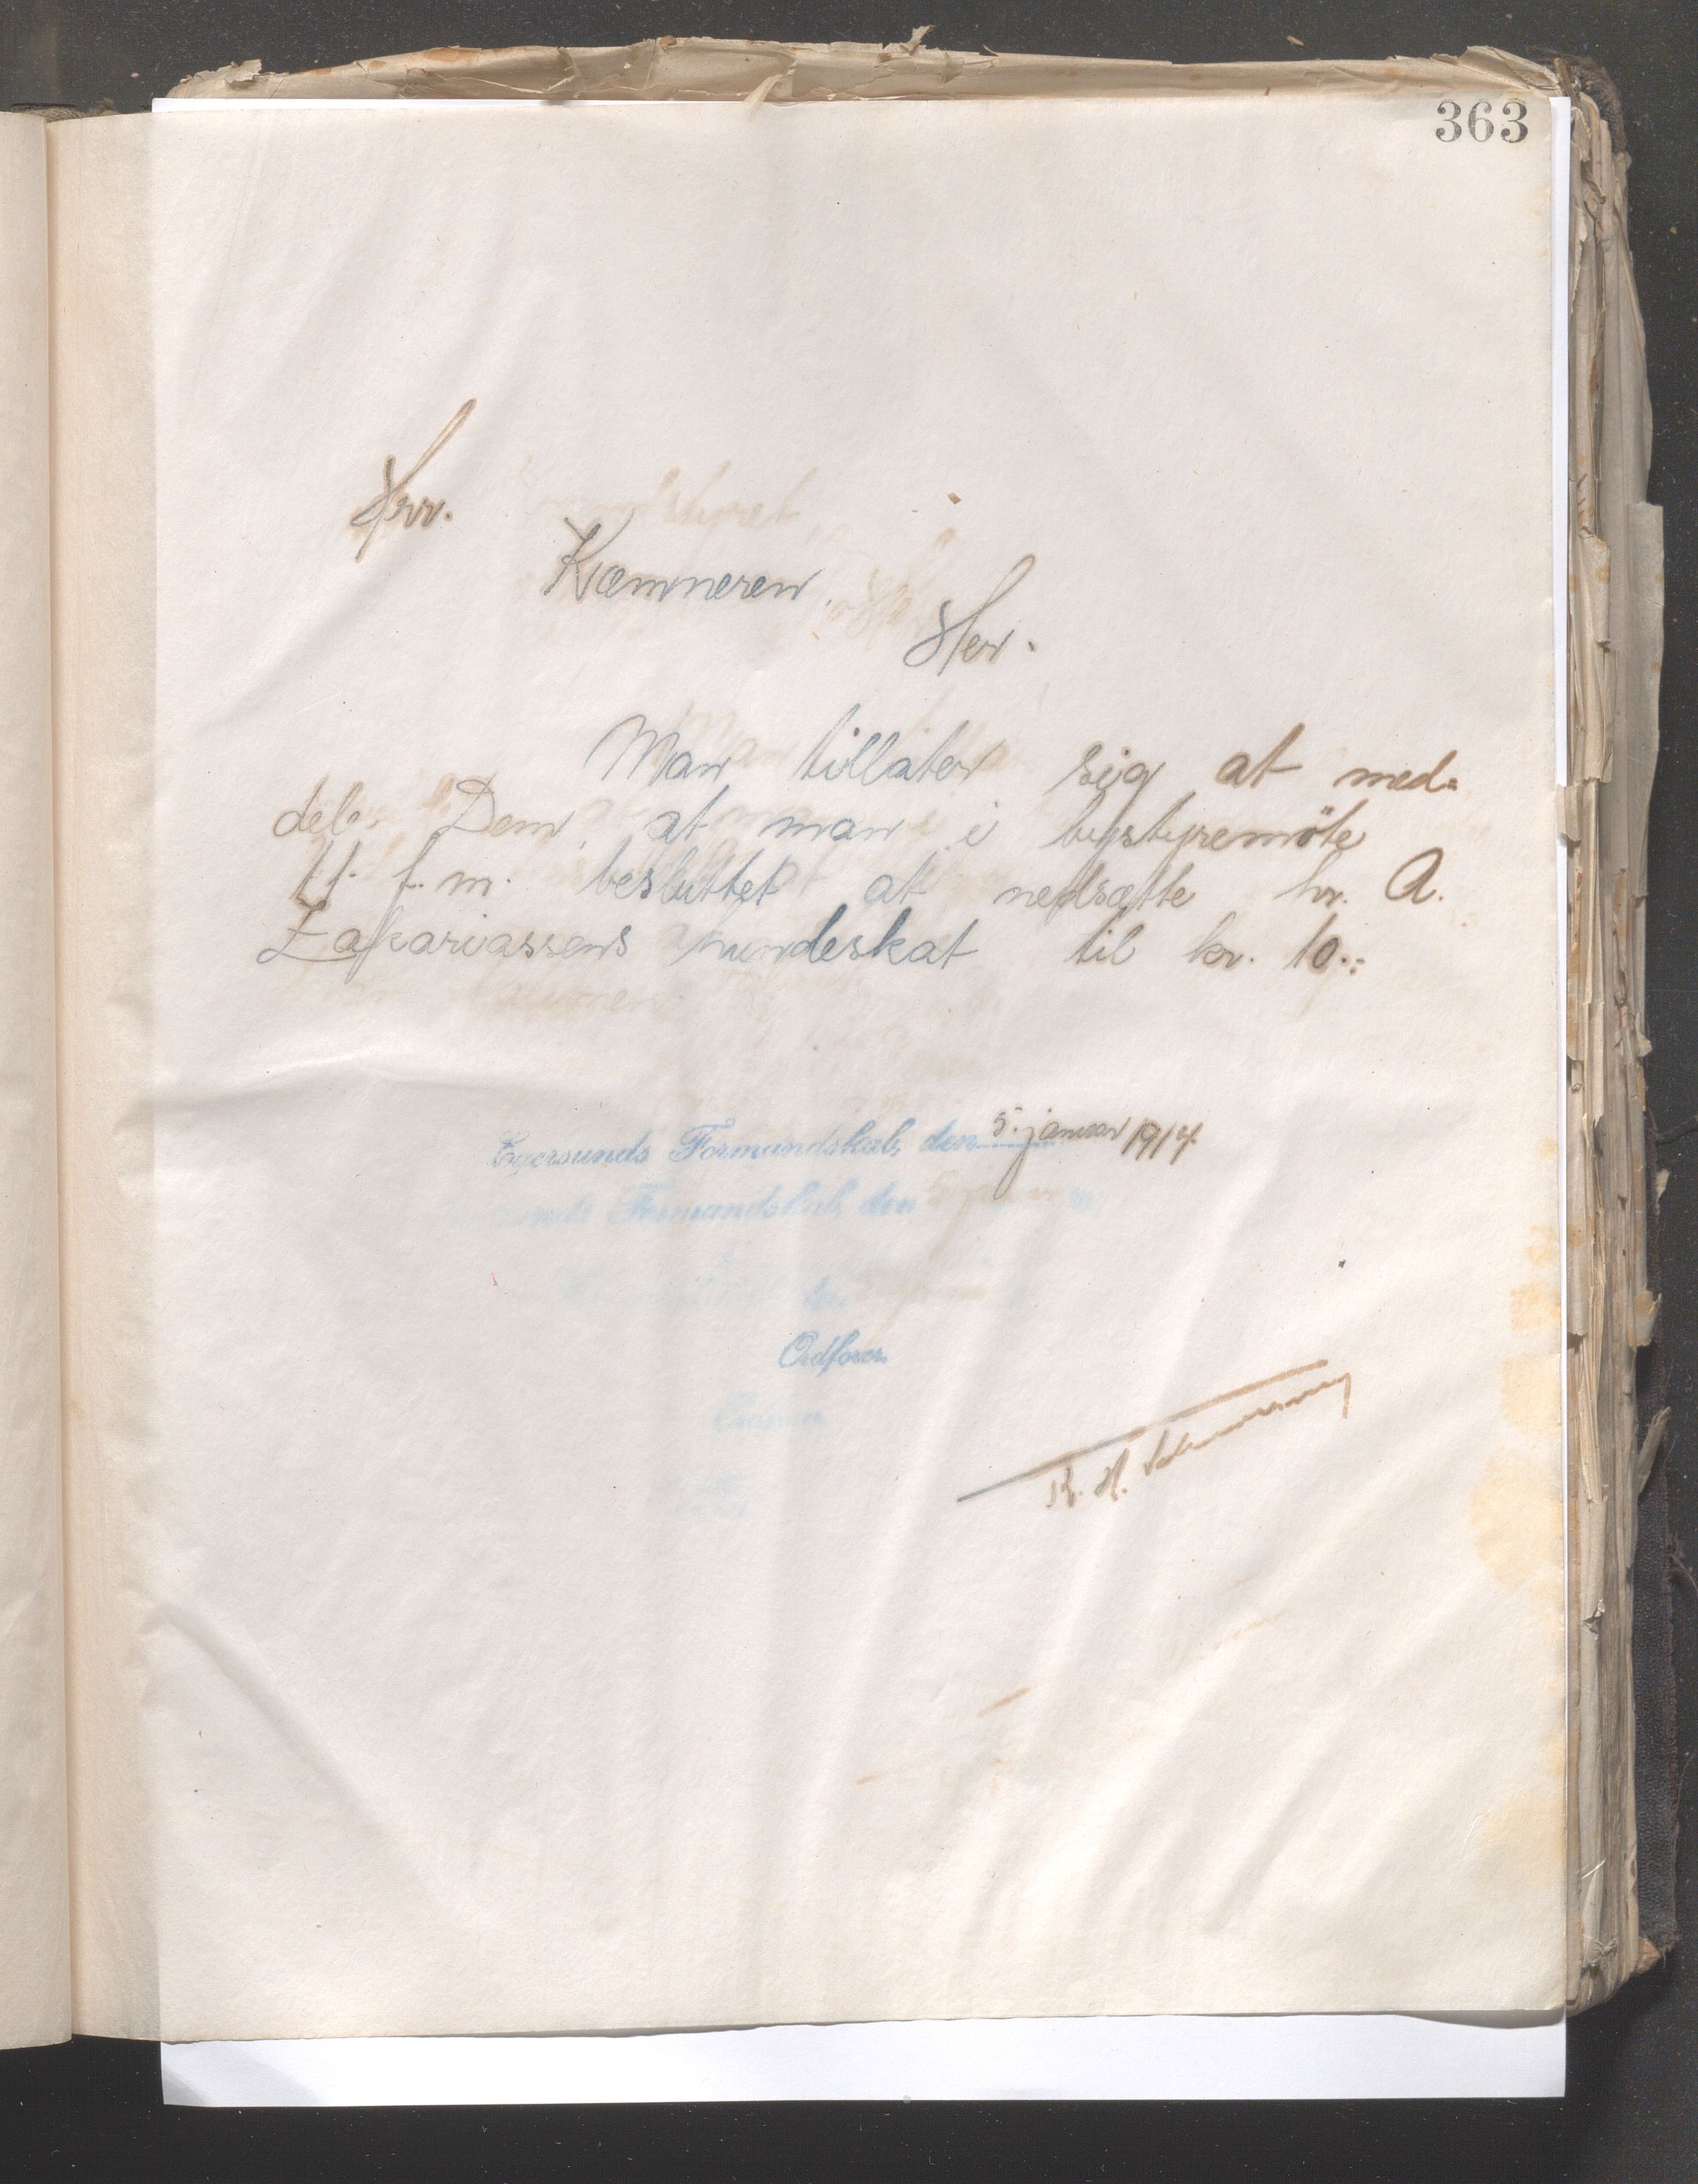 363
Herr.
Kæmneren.
Her.
Man tillater sig at med=
dele Dem, at man i bystyremöte
f. m. besluttet at nedsætte hr. A.
Zakariassens hundeskat til kr. 10.-
Egersunds Formandskab, den 5. januar 1914.
Formandskab, den
Ordfører.